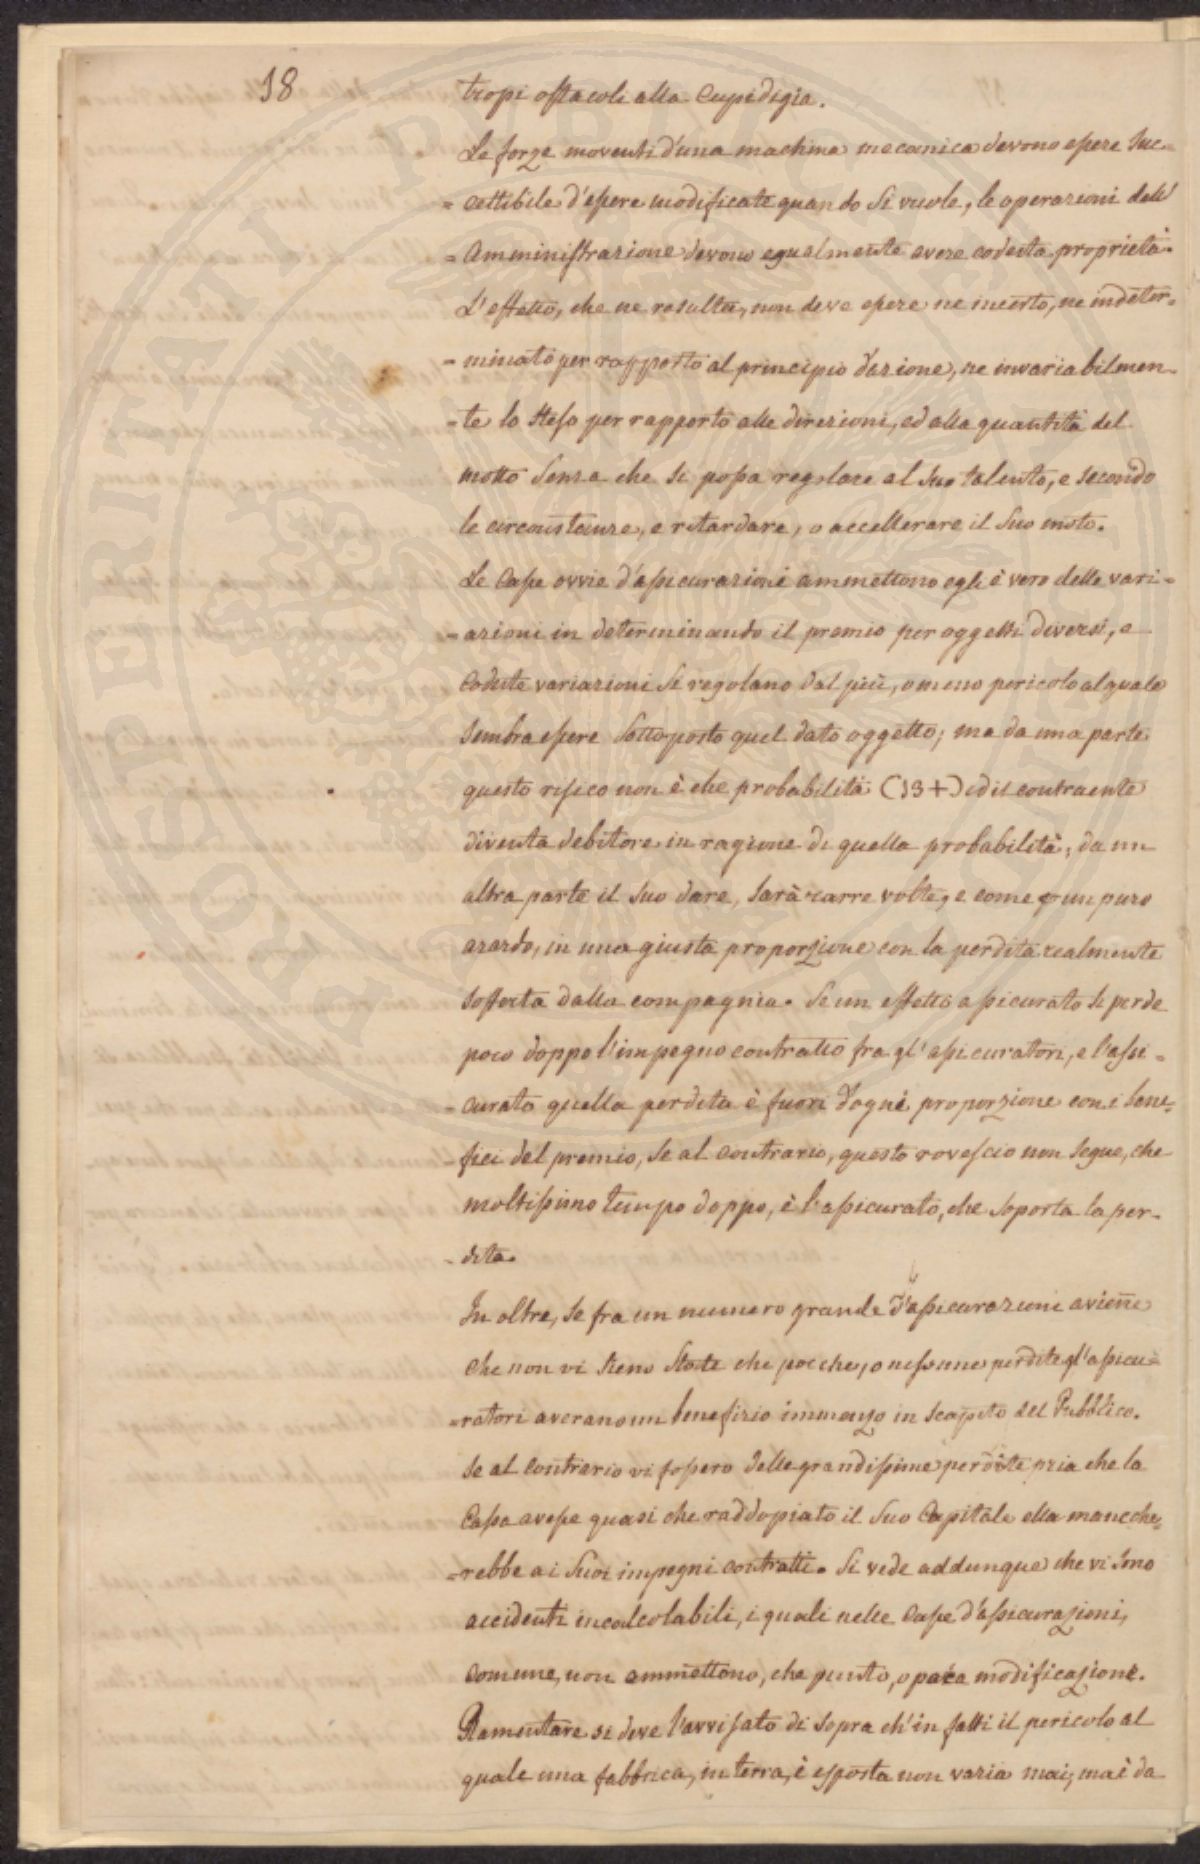 18
tropi ostacoli alla Cupidigia.
Le forze moventi d'una machina mecanica devono essere suc=
=cettibile d'essere modificate quando si vuole, le operazioni dell'
=Amministrazione devono egualmente avere codesta proprietà.
L'effetto, che ne resulta, non deve essere ne incerto, ne indeter=
=minato per rapporto al principio d'azione, ne invariabilmen=
=te lo stesso per rapporto alle direzioni, ed alla quantità del
motto senza che si possa regolare al suo talento, e secondo
le circonstanze, e ritardare, o accellerare il suo moto.
Le Case ovvie d'assicurazioni ammettono egli è vero delle vari=
=azioni in determinando il premio per oggetti diversi, e
Codeste variazioni si regolano dal più, o meno pericolo al quale
sembra essere sottoposto quel dato oggetto; ma da una parte
questo risico non è che probabilità (13+) ed il contraente
diventa debitore in ragione di quella probabilità; da un
altra parte il suo dare, sarà rarre volte, e come un puro
azardo, in una giusta proporzione con la perdita realmente
sofferta dalla compagnia. Se un effetto assicurato si perde
poco doppo l'impegno contratto fra gl'assicuratori, e l'assi=
=curato quella perdita è fuori d'ogni proporzione con i bene=
fici del premio, se al contrario, questo rovescio non segue, che
moltissimo tempo doppo, è l'assicurato, che soporta la per=
=dita.
In oltre, se fra un numero grande d'assicurazioni aviene
che non vi sieno state che poche, o nessune perdite gl'assicu=
=ratori averano un benefizio immenzo in scapito del Pubblico.
se al contrario vi fossero delle grandissime perdite pria che la
Casa avesse quasi che raddopiato il suo Capitale ella manche=
=rebbe ai suoi impegni contratti. Si vede addunque che vi sono
accidenti incalcolabili, i quali nelle Case d'assicurazioni,
comune, non ammettono, che punto, o poca modificazione.
Ramentare si deve l'avvisato di sopra ch'in fatti il pericolo al
quale una fabbrica, in terra, è esposta non varia mai; ma è da
POSTERITATI